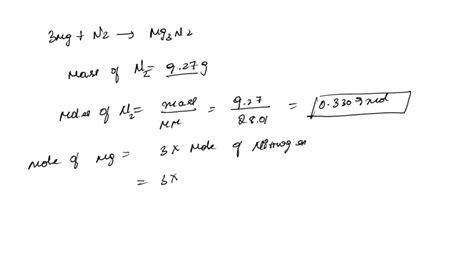 3Mg + N2 → Mg3N2
Mass of N2 = 9.27g
Moles of N2 = mass/MM = 9.27/28.01 = 0.3309 mol
Mole of Mg = 3 x mole of Nitrogen
= 3x